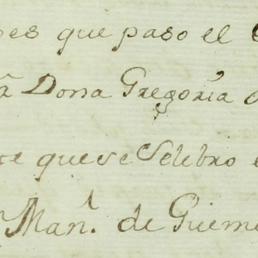 es que paso el
Dona Gregoria
que se Selebro
Man.l de Guem